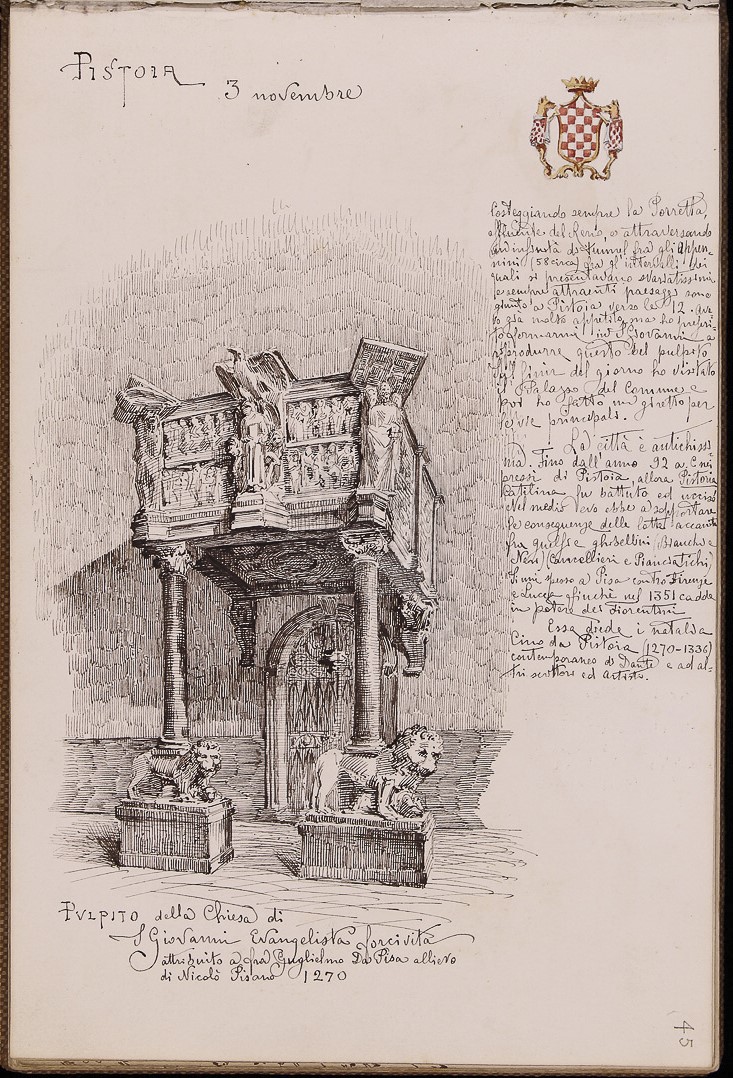 PISTOIA
3 novembre
Costeggiando sempre la Porretta,
affluente del Reno, o attraversando
un'infinità di tunnel fra gli Appen-
nini (58 circa) fra gl'intervalli dei
quali si presentavano svariatissimi
e sempre attraenti paesaggi sono
giunto a Pistoia verso le 12. Ave-
vo già molto appetito, ma ho preferi-
to fermarmi in S. Giovanni a
riprodurre questo bel pulpito
Sul finir del giorno ho visitato
il Palazzo del Comune e
poi ho fatto un giretto per
le vie principali.
La città è antichissi
ma. Fino dall'anno 92 a.
pressi di Pistoia, allora Pistoria
Catilina fu battuto ed ucciso
Nel medio evo ebbe a sopportare
le conseguenze delle lotte accanite
fra guelfi e ghibellini (Bianchi e
Neri) (Cancellieri e Panciatichi)
Si unì spesso a Pisa contro Firenze
e Lucca finchè nel 1351 cadde
in potere dei Fiorentini
Essa diede i natali a
Cino da Pistoia (1270-1336)
contemporaneo di Dante e ad al-
tri scrittori ed artisti.
PVLPITO della Chiesa di
S Giovanni Evangelista forcivita
attribuito a fra Guglielmo Da Pisa allievo
di Nicolò Pisano 1270
45